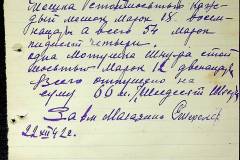 мешка стоимостью каж-
дый мешок марок 18 восем-
надцать а всего 54 марок
пидесят четыре.
одна мотушка шнура стои
мостью марок 12 двенадцать
Всего отпущено на
сумму 66 м. (шестдесят шесть)
Зав. магазина
22 XII 42 г.